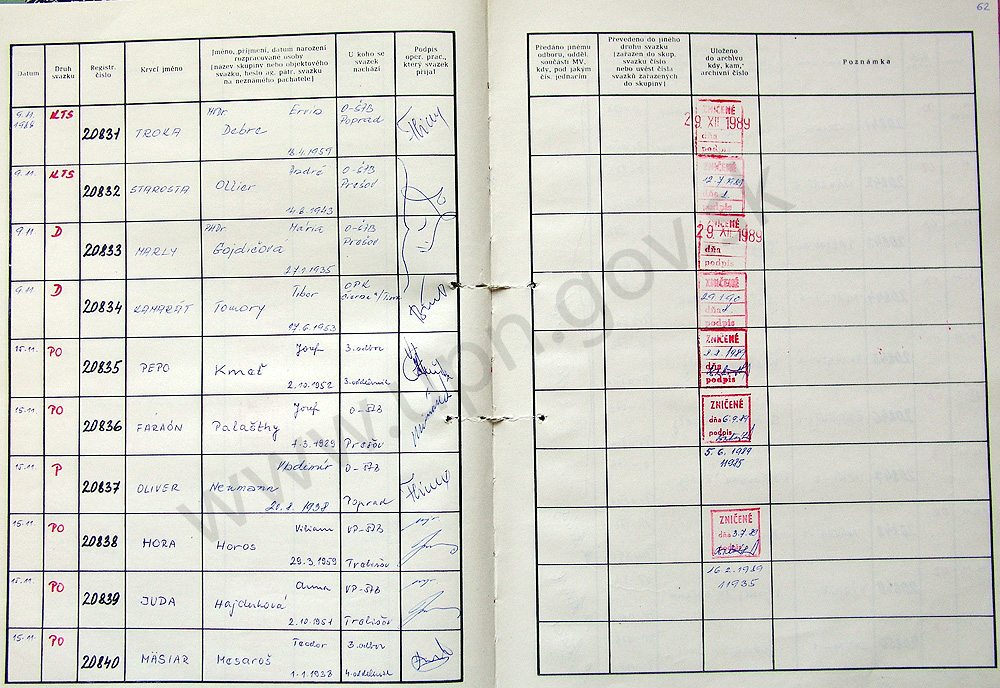 62
Datum
Druh svazku
Registr. číslo
Krycí jméno
Jméno, příjmení, datum narození
rozpracované osoby
[název skupiny nebo objektového
svazku, heslo ag. pátr. svazku
na neznámého pachatele]
U koho se
svazek
nachází
Podpis
oper. prac.,
který svazek
přijal
Předáno jinému
odboru, odděl.
součásti MV,
kdy, pod jakým
čís. jednacím
Převedeno do jiného
druhu svazku
[zařazen do skup.
svazku číslo
nebo uvést čísla
svazků zařazených
do skupiny]
Uloženo
do archivu
kdy, kam,
archivní číslo
Poznámka
9.11. 1988 KTS 20831 TROKA MUDr Ervin Debre 0-ŠtB Poprad
ZNIČENÉ
29 XII 1989
dňa
podpis
9.11. KTS 20832 STAROSTA André Ollier 14.6.1943 0-ŠtB Prešov
ZNIČENÉ
dňa
podpis
9.11 D 20833 MARLY PHDr Mária Gojdičova 27.1.1935 0-ŠtB Prešov
ZNIČENÉ
29. XII. 1989
dňa
podpis
9.11 D 20834 KAMARÁT Tibor Tomory 17.6.1953 OPK
ZNIČENÉ
29.1.90
dňa
podpis
15.11. PO 20835 PEPO Jozef Kmeť 2.10.1952 3.odbor 3.oddelenie
ZNIČENÉ
dňa
podpis
15.11. PO 20836 FARAÓN Jozef Palašthy 1.3.1929 0-ŠtB Prešov
ZNIČENÉ
dňa 6.9.89
podpis
15.11. P 20837 OLIVER Vladimír Neumann 20.8.1938 0-ŠtB Poprad
5.6.1989
11985
15.11. PO 20838 HORA Viliam Horos 29.3.1959 VP-ŠtB Trebišov
ZNIČENÉ
dňa 3.7.89
podpis
15.11. PO 20839 JUDA Anna Hajduková 2.10.1951 VP-ŠtB Trebišov
16.2.1989
11935
15.11. PO 20840 MÄSIAR Teodor Mesaroš 1.1.1938 3.odbor 4.oddelenie
www.upn.gov.sk